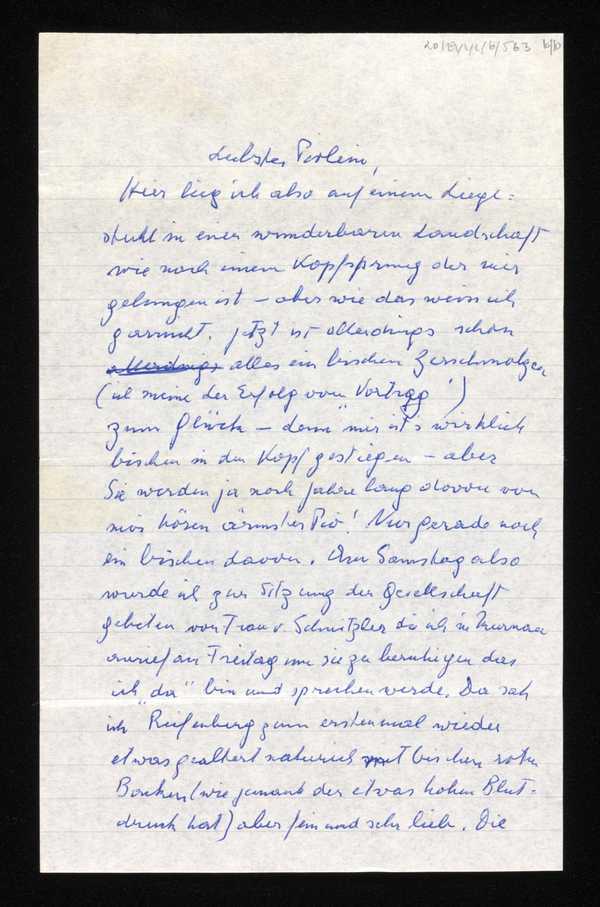 Liebster Piolein,
Hier lieg ich also auf einem Liege=
stuhl in einer wunderbaren Landschaft
wie nach einem Kopfsprung der mir
gelungen ist – aber wie das weiss ich
garnicht. jetzt ist allerdings schon
allerdings alles ein bischen zerschmolzen
(ich meine der Erfolg vom Vortrag!)
zum Glück – denn mir ist's wirklich
bischen in den Kopf gestiegen – aber
Sie werden ja noch Jahre lang davon von
mir hören ärmster Pio! Nur gerade noch
ein bischen davon. Am Samstag also
wurde ich zur Sitzung der Gesellschaft
gebeten von Frau v. Schnitzler die ich in Murnau
anrief am Freitag um sie zu beruhigen das
ich "da" bin und sprechen werde. Da sah
ich Reifenberg zum erstenmal wieder
etwas gealtert natürlich mit bischen roten
Backen (wie jemand der etwas hohen Blut=
druck hat) aber fein und sehr lieb. Die